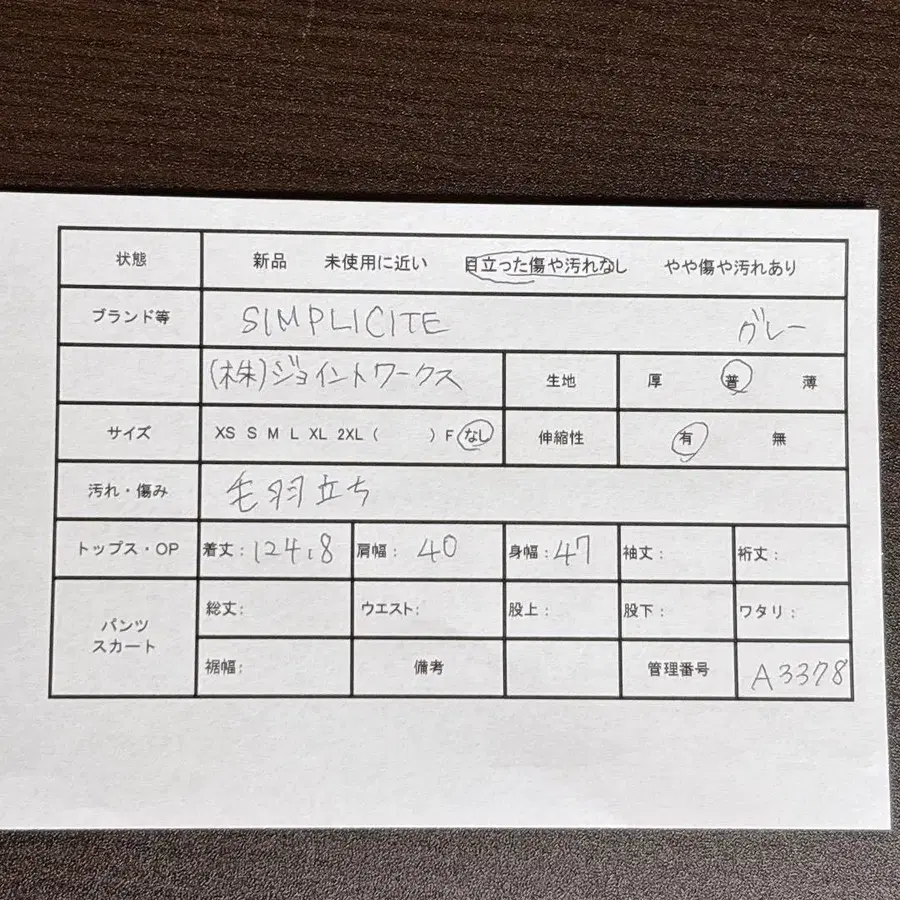 状態 新品 未使用に近い 目立った傷や汚れなし やや傷や汚れあり
ブランド等 SIMPLICITE グレー
(株)ジョイントワークス 生地 厚 普 薄
サイズ XS S M L XL 2XL ( ) F なし 伸縮性 有 無
汚れ・傷み 毛羽立ち
トップス・OP 着丈: 124.8 肩幅: 40 身幅: 47 袖丈: 裄丈:
パンツ
スカート
総丈: ウエスト: 股上: 股下: ワタリ:
裾幅: 備考 管理番号 A3378